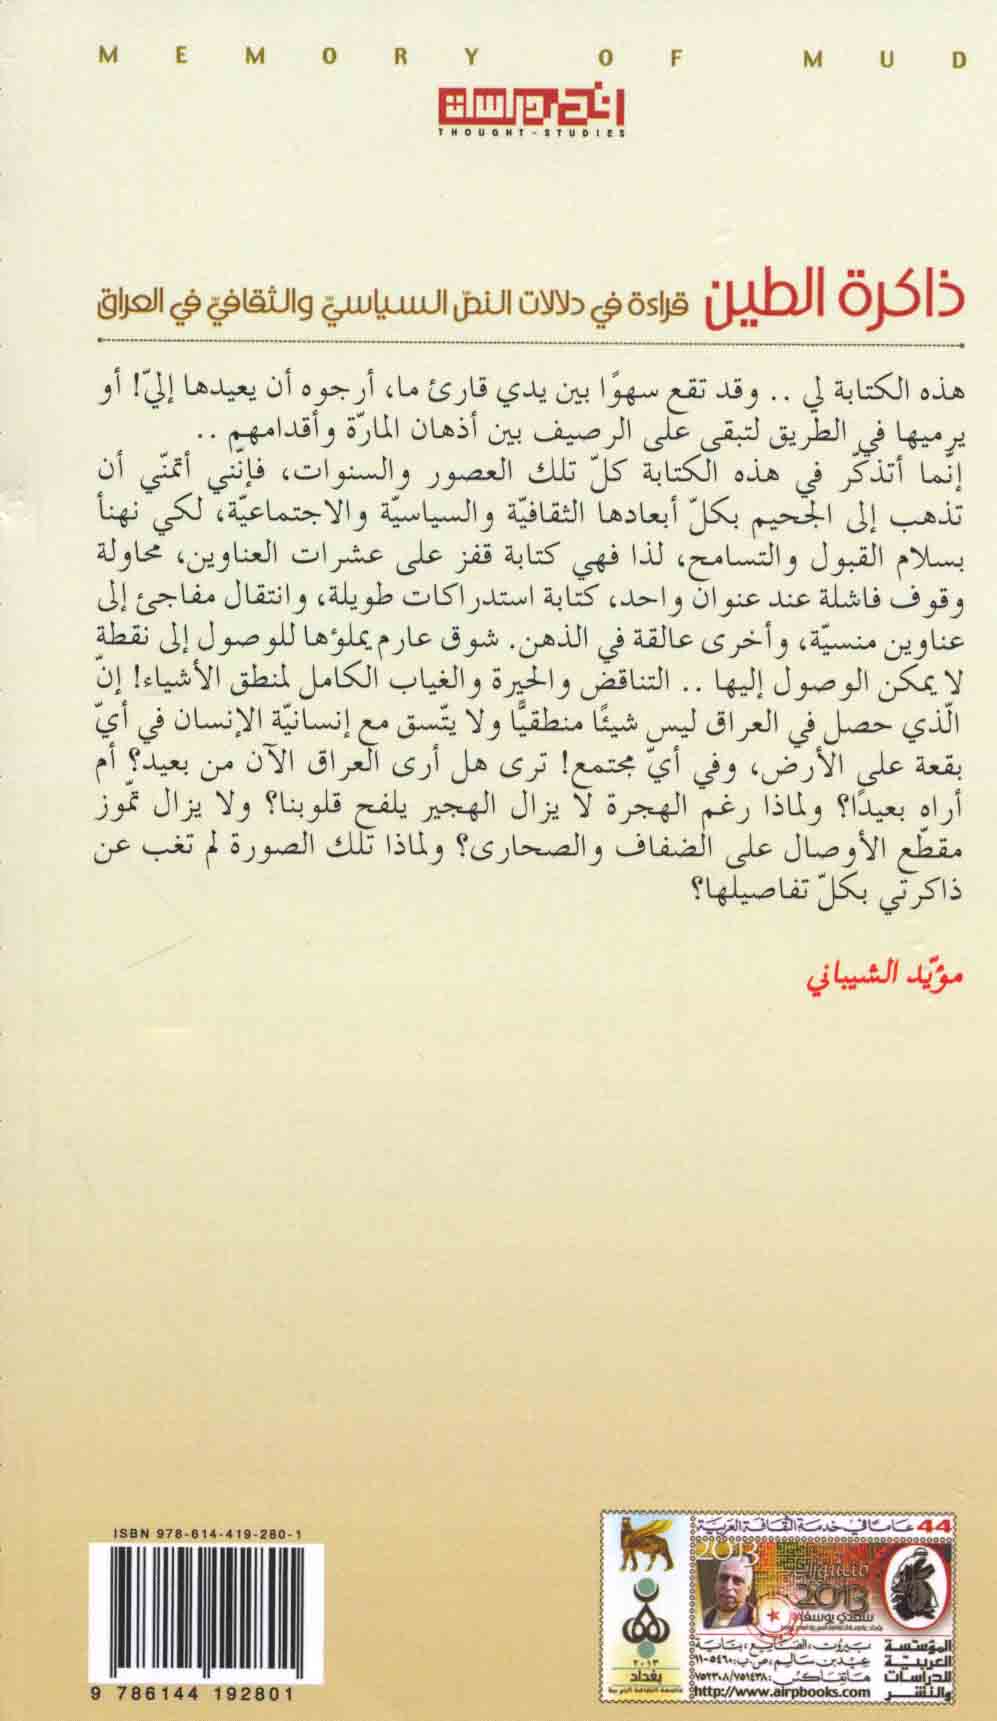 MEMORY OF MUD
THOUGHT-STUDIES
ذاكرة الطين قراءة في دلالات النصّ السياسيّ والثقافيّ في العراق
هذه الكتابة لي .. وقد تقع سهوًا بين يدي قارئ ما، أرجوه أن يعيدها إليّ! أو
يرميها في الطريق لتبقى على الرصيف بين أذهان المارّة وأقدامهم ..
إنّما أتذكّر في هذه الكتابة كلّ تلك العصور والسنوات، فإنّني أتمنّي أن
تذهب إلى الجحيم بكلّ أبعادها الثقافيّة والسياسيّة والاجتماعيّة، لكي نهنأ
بسلام القبول والتسامح، لذا فهي كتابة قفز على عشرات العناوين، محاولة
وقوف فاشلة عند عنوان واحد، كتابة استدراكات طويلة، وانتقال مفاجئ إلى
عناوين منسيّة، وأخرى عالقة في الذهن. شوق عارم يملؤها للوصول إلى نقطة
لا يمكن الوصول إليها .. التناقض والحيرة والغياب الكامل لمنطق الأشياء! إنّ
الّذي حصل في العراق ليس شيئًا منطقيًّا ولا يتّسق مع إنسانيّة الإنسان في أيّ
بقعة على الأرض، وفي أيّ مجتمع! ترى هل أرى العراق الآن من بعيد؟ أم
أراه بعيدًا؟ ولماذا رغم الهجرة لا يزال الهجير يلفح قلوبنا؟ ولا يزال تمّوز
مقطّع الأوصال على الضفاف والصحارى؟ ولماذا تلك الصورة لم تغب عن
ذاكرتي بكلّ تفاصيلها؟
مؤيّد الشيباني
ISBN 978-614-419-280-1
9 786144 192801
44 عاماً في خدمة الثقافة العربية
2013
2013
سعدي يوسف
٢٠١٣
بغداد
المؤسسة
العربية
للدراسات
والنشر
بيروت، الصنايع، بناية
عيد بن سالم، ص.ب: ٥٤٦٠-١١
هاتفاكس: ٧٥٢٣٠٨/٧٥١٤٣٨
http://www.airpbooks.com